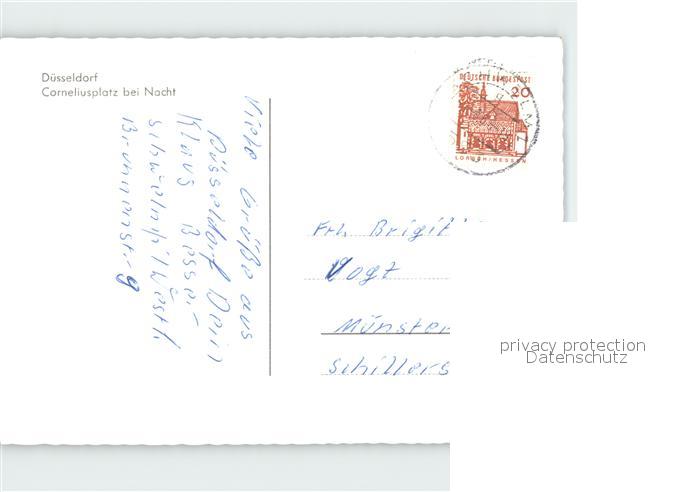 Düsseldorf
Corneliusplatz bei Nacht
Viele Grüße aus
Düsseldorf Dein
Klaus Besser
DEUTSCHE BUNDESPOST
20
LORSCH/HESSEN
Frl. Brigit
Vogt
Münster
Schillers
privacy protection
Datenschutz